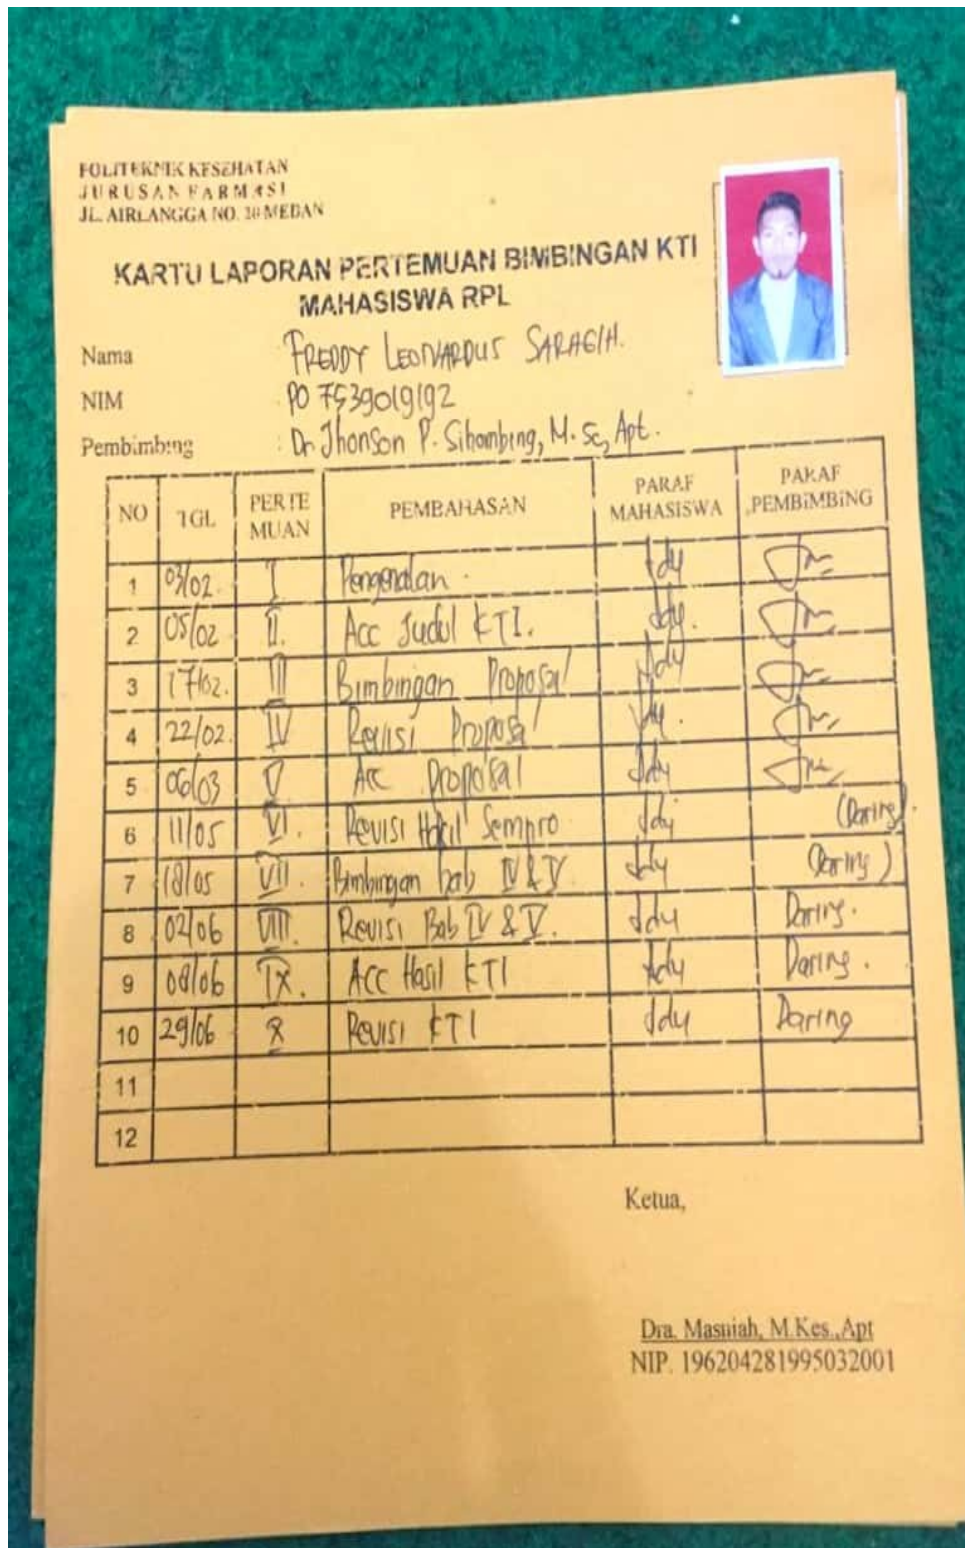 POLITEKNIK KESEHATAN
JURUSAN FARMASI
JL. AIRLANGGA NO. 20 MEDAN
KARTU LAPORAN PERTEMUAN BIMBINGAN KTI
MAHASISWA RPL
Nama FREDDY LEONARDUS SARAGIH.
NIM PO 7539019192
Pembimbing : Dr. Jhonson P. Sihombing, M. Sc, Apt.
NO TGL PERTE MUAN PEMBAHASAN PARAF MAHASISWA PARAF PEMBIMBING
1 03/02. I Pengenalan.
2 05/02 II. Acc Judul KTI.
3 17/02. III Bimbingan Proposal
4 22/02. IV Revisi Proposal
5 06/03 V Acc Proposal
6 11/05 VI. Revisi Hasil Sempro (Daring).
7 18/05 VII. Bimbingan bab IV & V. (Daring)
8 02/06 VIII. Revisi Bab IV & V. Daring.
9 08/06 IX. Acc Hasil KTI Daring.
10 29/06 X Revisi KTI Daring
11
12
Ketua,
Dra. Masniah, M.Kes.,Apt
NIP. 196204281995032001